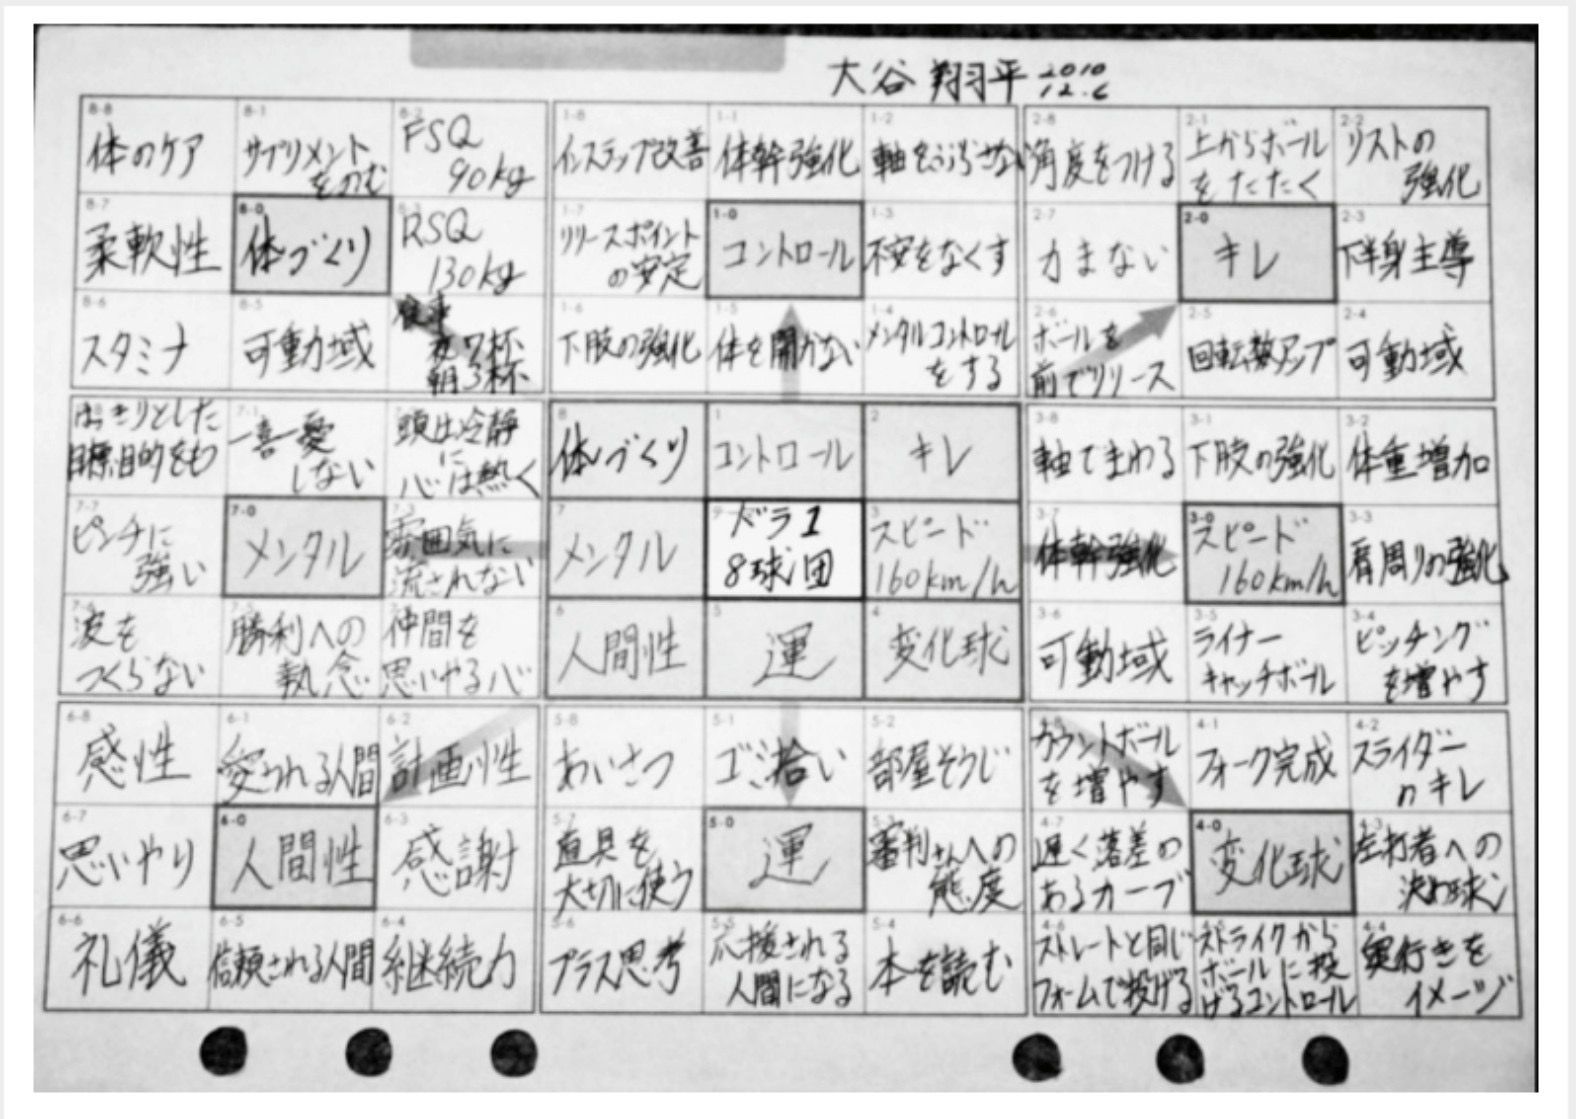 大谷 翔平 2010
12.6
8-8 8-1 8-2 1-8 1-1 1-2 2-8 2-1 2-2
体のケア
サプリメント
をのむ
FSQ
90kg
インステップ改善
体幹強化
軸をぶらさない
角度をつける
上からボール
をたたく
リストの
強化
8-7 8-0 8-3 1-7 1-0 1-3 2-7 2-0 2-3
柔軟性
体づくり
RSQ
130kg
リリースポイント
の安定
コントロール
不安をなくす
力まない
キレ
下半身主導
8-6 8-5 1-6 1-5 1-4 2-6 2-5 2-4
スタミナ
可動域
食事
夜7杯
朝3杯
下肢の強化
体を開かない
メンタルコントロール
をする
ボールを
前でリリース
回転数アップ
可動域
7-1 8 1 2 3-8 3-1 3-2
はっきりとした
目標、目的をもつ
一喜一憂
しない
頭は冷静
に
心は熱く
体づくり
コントロール
キレ
軸でまわる
下肢の強化
体重増加
7-7 7-0 7 9 3 3-7 3-0 3-3
ピンチに
強い
メンタル
雰囲気に
流されない
メンタル
ドラ1
8球団
スピード
160km/h
体幹強化
スピード
160km/h
肩周りの強化
7-6 7-5 6 5 4 3-6 3-5 3-4
波を
つくらない
勝利への
執念
仲間を
思いやる心
人間性
運
変化球
可動域
ライナー
キャッチボール
ピッチング
を増やす
6-8 6-1 6-2 5-8 5-1 5-2 4-8 4-1 4-2
感性
愛される人間
計画性
あいさつ
ゴミ拾い
部屋そうじ
カウントボール
を増やす
フォーク完成
スライダー
のキレ
6-7 6-0 6-3 5-7 5-0 5-3 4-7 4-0 4-3
思いやり
人間性
感謝
道具を
大切に使う
運
審判さんへの
態度
遅く落差の
あるカーブ
変化球
左打者への
決め球
6-6 6-5 6-4 5-6 5-5 5-4 4-6 4-5 4-4
礼儀
信頼される人間
継続力
プラス思考
応援される
人間になる
本を読む
ストレートと同じ
フォームで投げる
ストライクから
ボールに投
げるコントロール
奥行きを
イメージ